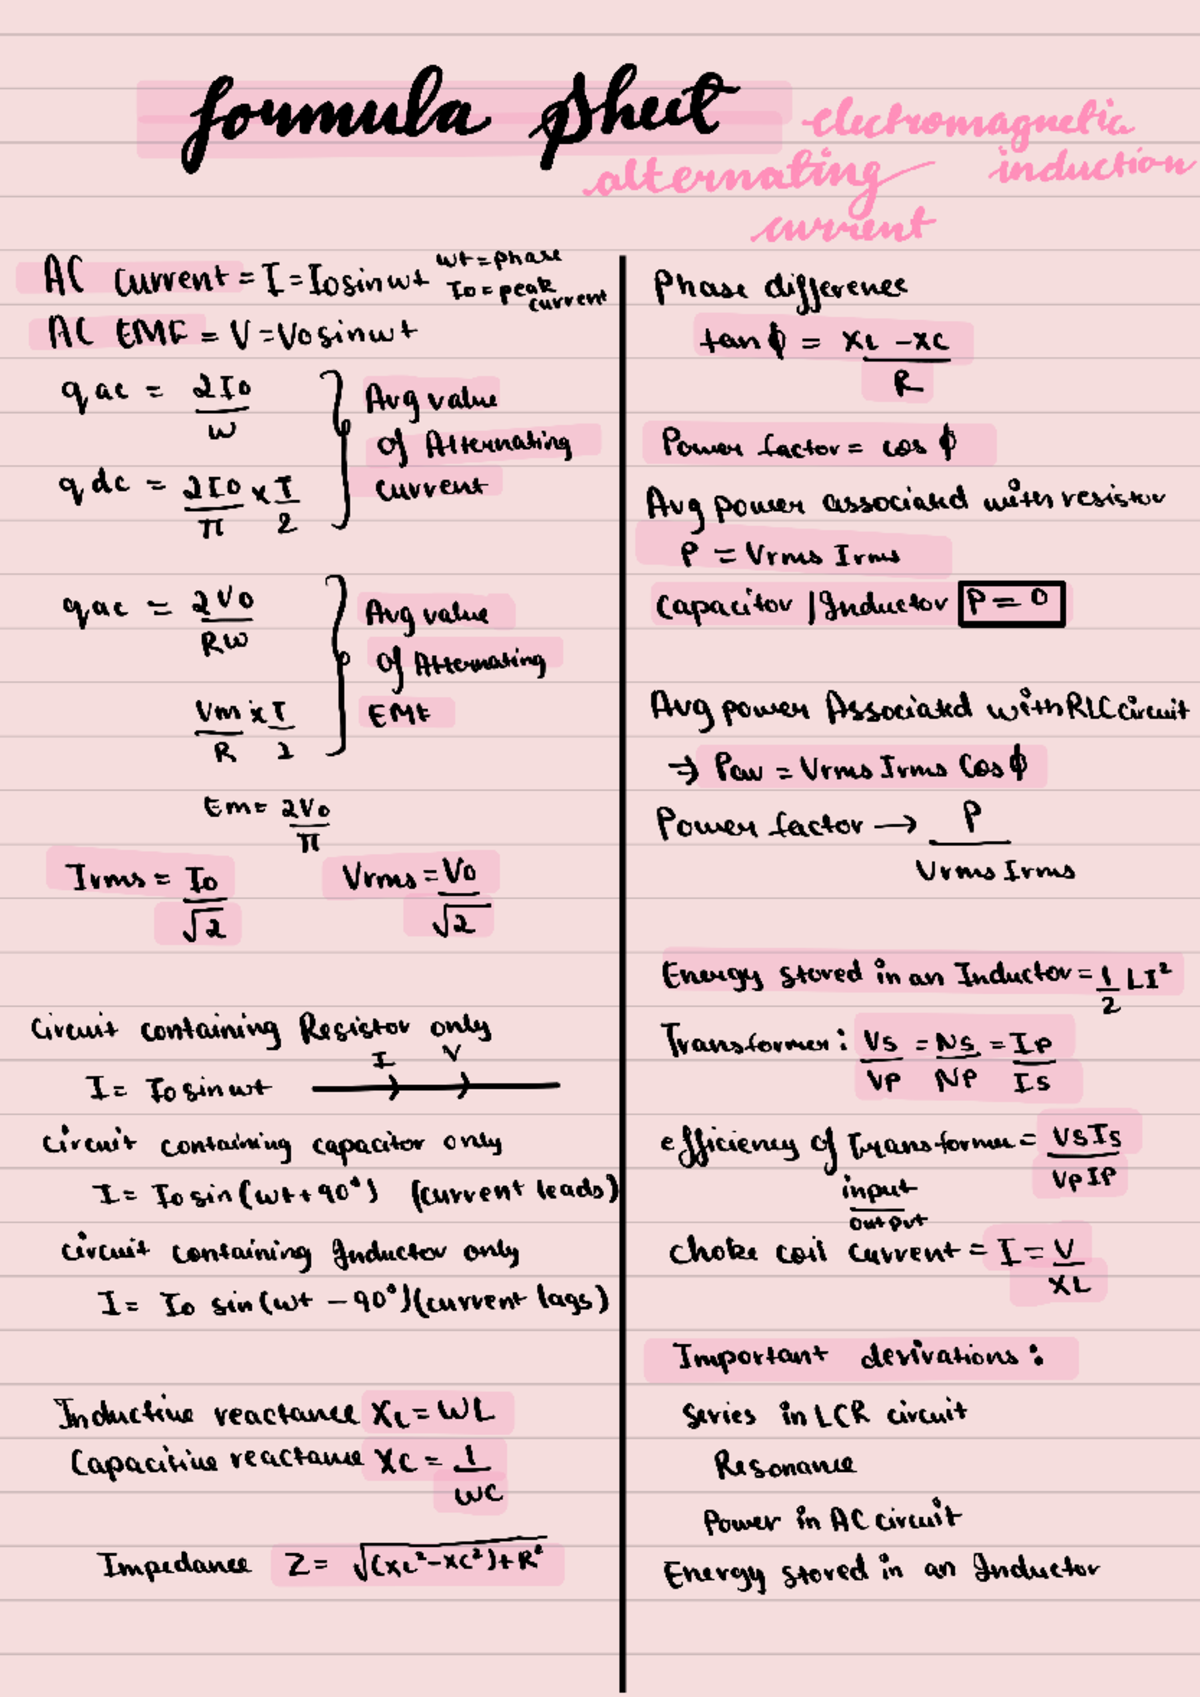 formula sheet
electromagnetic
induction
alternating
current
AC current = I = I0 sin wt
wt = phase
I0 = peak
current
AC EMF = V = V0 sin wt
q ac = 2I0/w
q dc = 2I0/π x T/2
Avg value
of Alternating
current
q ac = 2V0/RW
Vm/R x T/2
Avg value
of Alternating
EMF
Em = 2V0/π
Irms = I0/√2
Vrms = V0/√2
Circuit containing Resistor only
I V
I = I0 sin wt
Circuit containing capacitor only
I = I0 sin(wt + 90°) (current leads)
circuit containing Inductor only
I = I0 sin(wt - 90°)(current lags)
Inductive reactance XL = WL
Capacitive reactance XC = 1/WC
Impedance Z = √(XL²-XC²)+R²
Phase difference
tan ϕ = XL - XC/R
Power factor = cos ϕ
Avg power associated with resistor
P = Vrms Irms
Capacitor / Inductor P = 0
Avg power Associated with RLC circuit
⇒ Pav = Vrms Irms Cos ϕ
Power factor → P/Vrms Irms
Energy stored in an Inductor = 1/2 LI²
Transformer: VS/VP = NS/NP = IP/IS
efficiency of Transformer = VSIS/VPIP
input/output
choke coil current = I = V/XL
Important derivations:
Series in LCR circuit
Resonance
Power in AC circuit
Energy stored in an Inductor